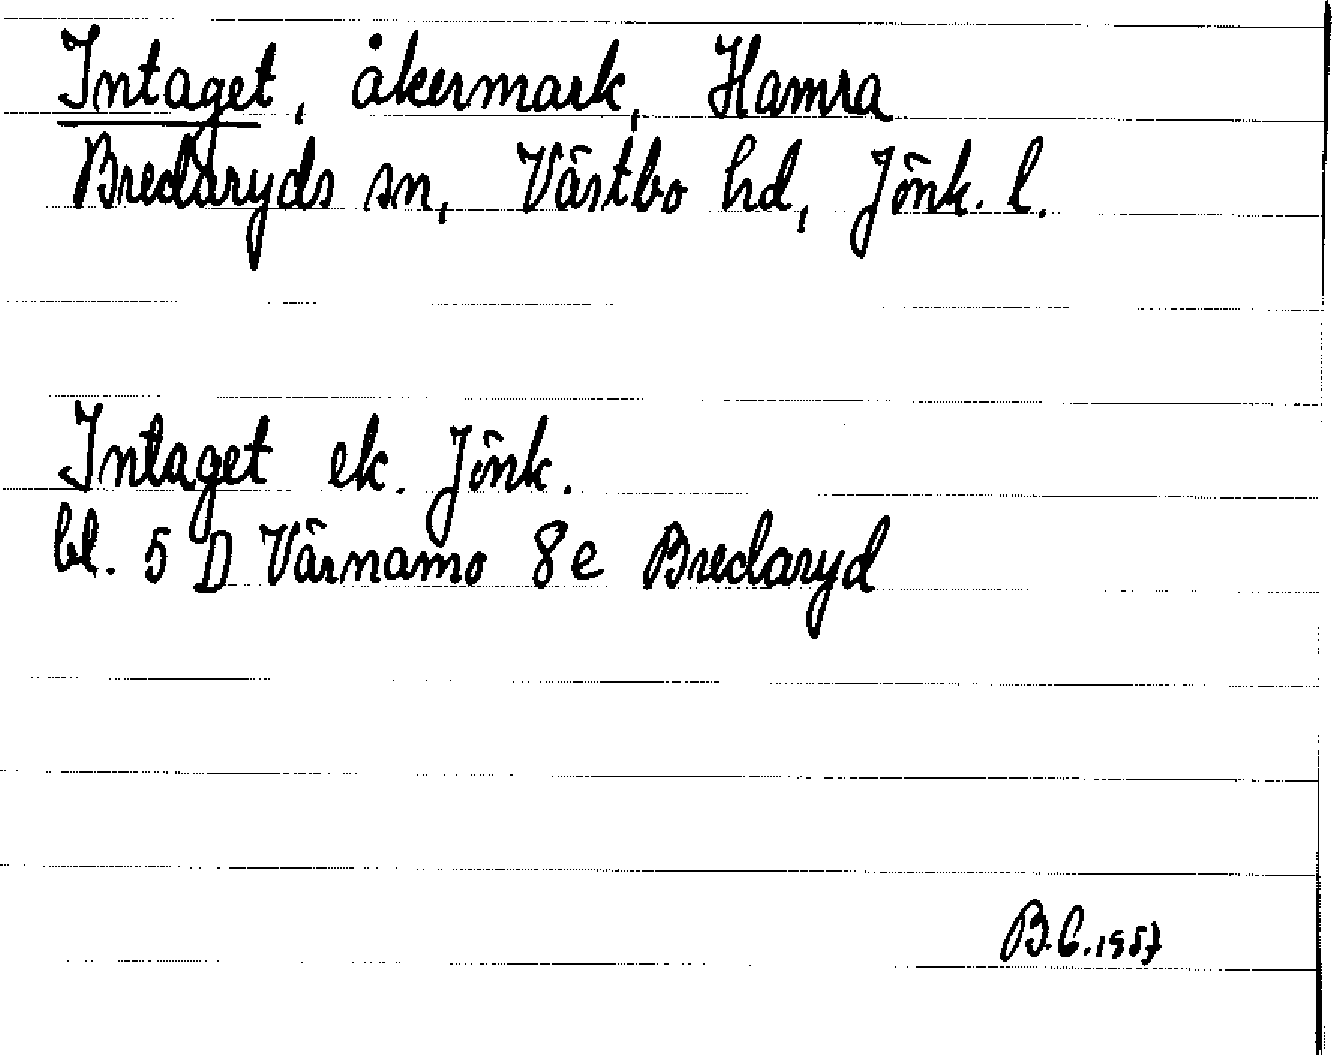 Intaget, åkermark, Hamra
Bredaryds sn, Västbo hd, Jönk. l.
Intaget ek. Jönk.
bl. 5 D Värnamo 8e Bredaryd
B.C. 1957